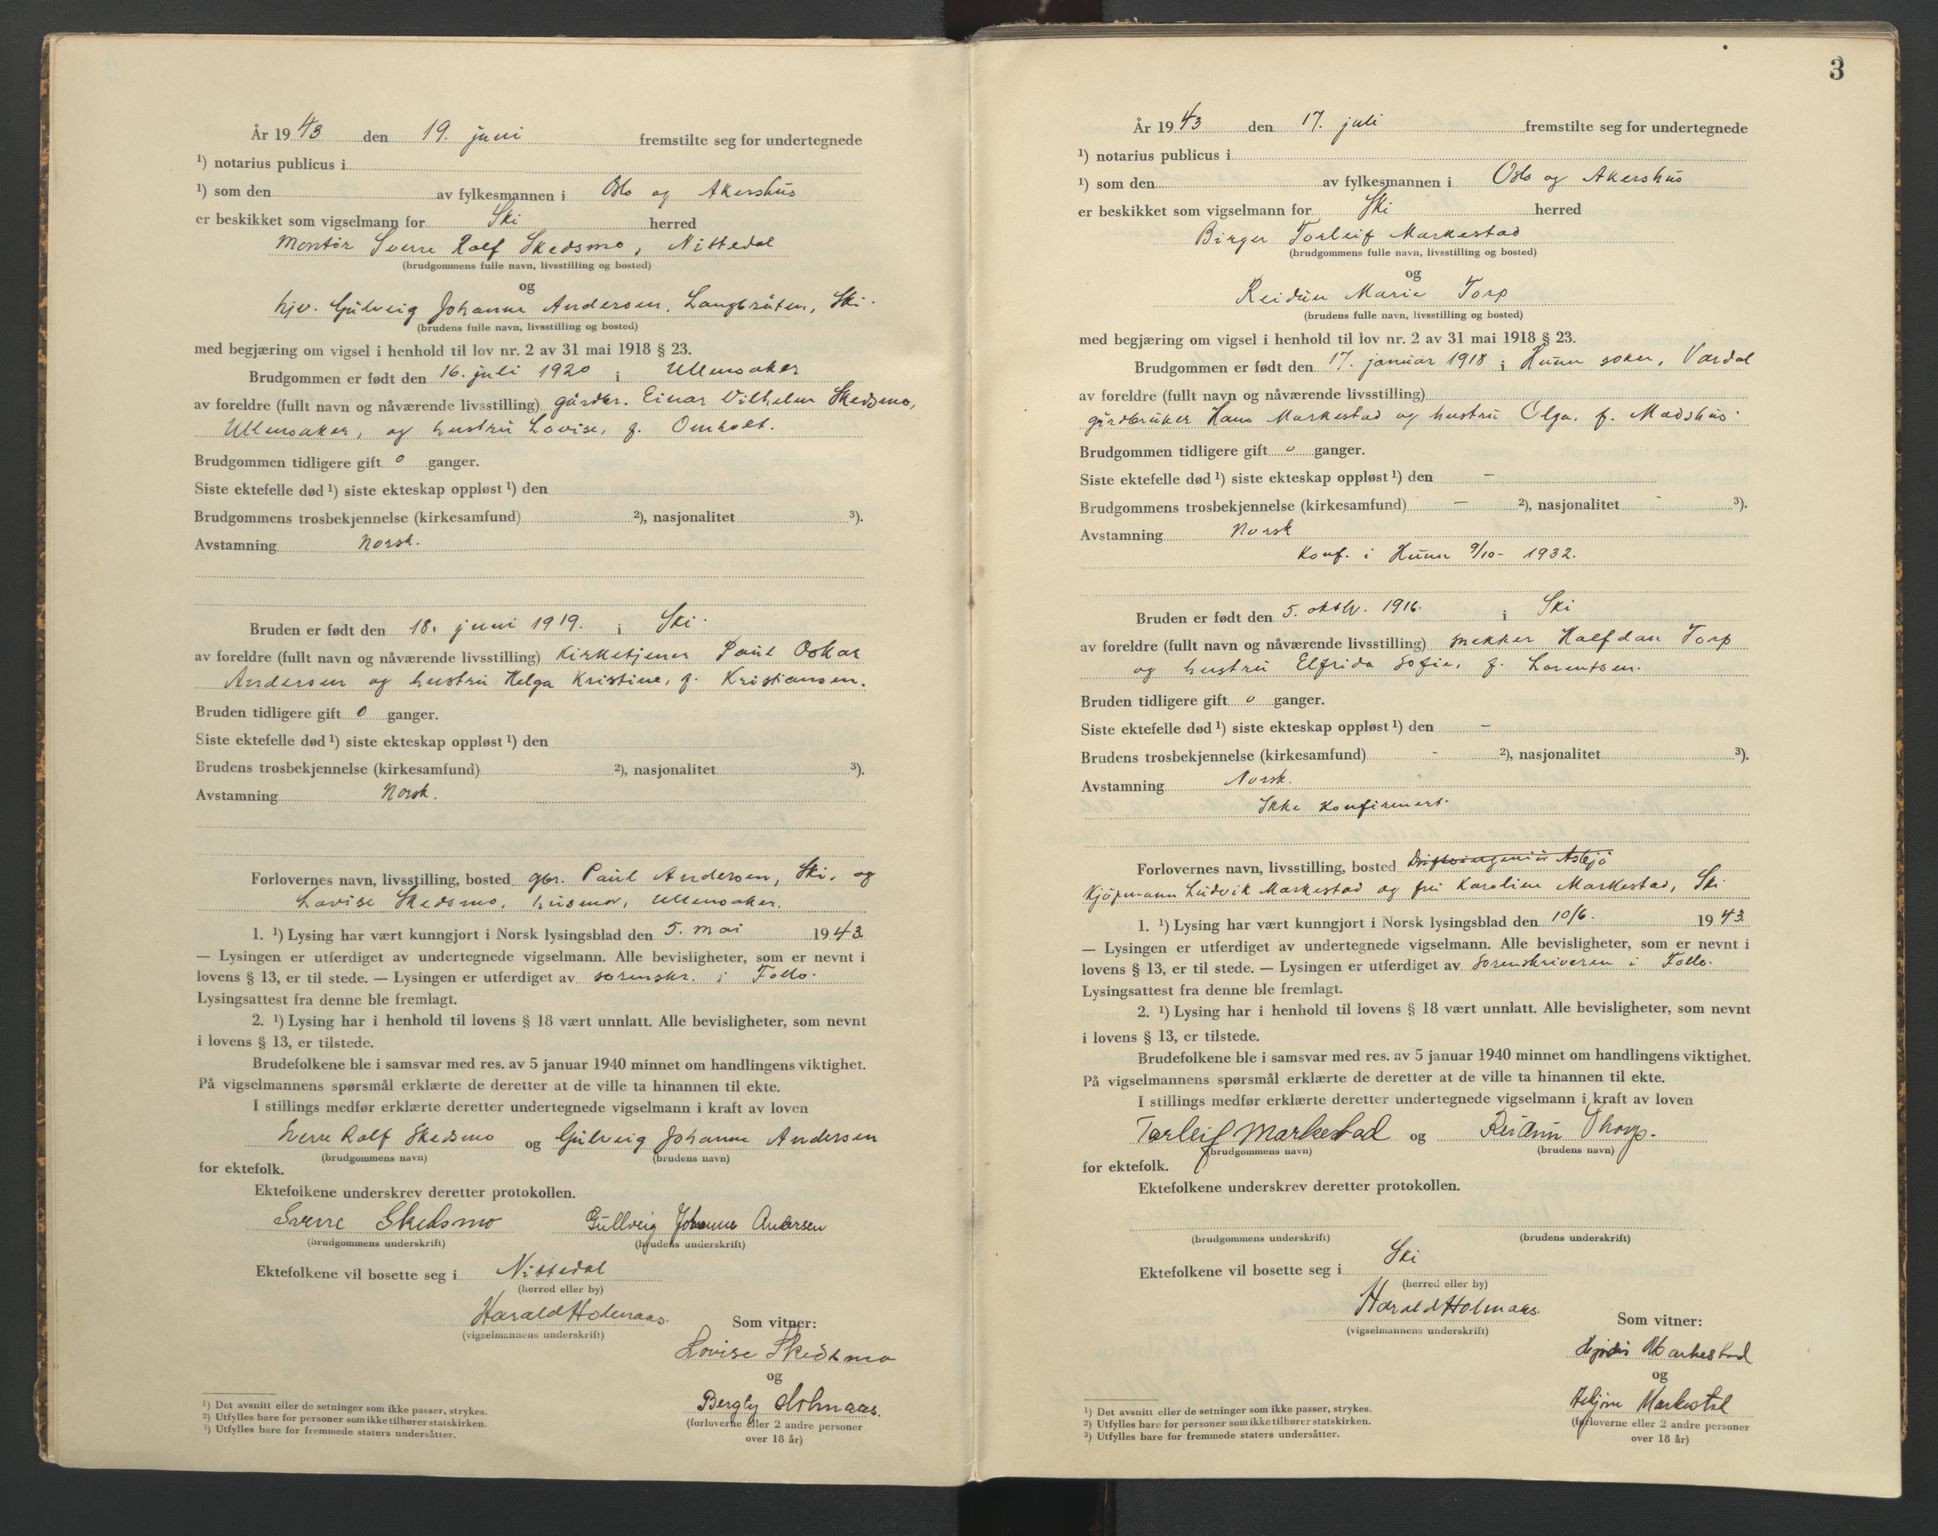 År 1943 den 19. juni fremstilte seg for undertegnede
¹) notarius publicus i
¹) som den av fylkesmannen i Oslo og Akershus
er beskikket som vigselmann for Ski herred
Montør Sverre Rolf Skedsmo, Nittedal
(brudgommens fulle navn, livsstilling og bosted)
og
hjv. Gulveig Johanne Andersen, Langbråten, Ski.
(brudens fulle navn, livsstilling og bosted)
med begjæring om vigsel i henhold til lov nr. 2 av 31 mai 1918 § 23.
Brudgommen er født den 16. juli 1920 i Ullensaker
av foreldre (fullt navn og nåværende livsstilling) gårdbr. Einar Vilhelm Skedsmo,
Ullensaker, og hustru Lovise, f. Omholt.
Brudgommen tidligere gift 0 ganger.
Siste ektefelle død ¹) siste ekteskap oppløst ¹) den
Brudgommens trosbekjennelse (kirkesamfund) ²), nasjonalitet ³).
Avstamning Norsk.
Bruden er født den 18. juni 1919. i Ski.
av foreldre (fullt navn og nåværende livsstilling) Kirketjener Paul Oskar
Andersen og hustru Helga Kristine, f. Kristiansen.
Bruden tidligere gift 0 ganger.
Siste ektefelle død ¹) siste ekteskap oppløst ¹) den
Brudens trosbekjennelse (kirkesamfund) ²), nasjonalitet ³).
Avstamning Norsk.
Forlovernes navn, livsstilling, bosted gbr. Paul Andersen, Ski, og
Lovise Skedsmo, husmor, Ullensaker.
1. ¹) Lysing har vært kunngjort i Norsk lysingsblad den 5. mai 1943
— Lysingen er utferdiget av undertegnede vigselmann. Alle bevisligheter, som er nevnt i
lovens § 13, er til stede. — Lysingen er utferdiget av sorenskr. i Follo.
Lysingsattest fra denne ble fremlagt.
2. ¹) Lysing har i henhold til lovens § 18 vært unnlatt. Alle bevisligheter, som nevnt
i lovens § 13, er tilstede.
Brudefolkene ble i samsvar med res. av 5 januar 1940 minnet om handlingens viktighet.
På vigselmannens spørsmål erklærte de deretter at de ville ta hinannen til ekte.
I stillings medfør erklærte deretter undertegnede vigselmann i kraft av loven
Sverre Rolf Skedsmo og Gulveig Johanne Andersen
(brudgommens navn) (brudens navn)
for ektefolk.
Ektefolkene underskrev deretter protokollen.
Sverre Skedsmo Gullveig Johanne Andersen
(brudgommens underskrift) (brudens underskrift)
Ektefolkene vil bosette seg i Nittedal
(herred eller by)
Harald Holmaas.
(vigselmannens underskrift)
Som vitner:
Lovise Skedsmo
og
Bergly Holmaas.
(forloverne eller 2 andre personer
over 18 år)
¹) Det avsnitt eller de setninger som ikke passer, strykes.
²) Utfylles bare for personer som ikke tilhører statskirken.
³) Utfylles bare for fremmede staters undersåtter.
3
År 1943 den 17. juli fremstilte seg for undertegnede
¹) notarius publicus i
¹) som den av fylkesmannen i Oslo og Akershus
er beskikket som vigselmann for Ski herred
Birger Torleif Markestad
(brudgommens fulle navn, livsstilling og bosted)
og
Reidun Marie Torp
(brudens fulle navn, livsstilling og bosted)
med begjæring om vigsel i henhold til lov nr. 2 av 31 mai 1918 § 23.
Brudgommen er født den 17. januar 1918 i Hunn sokn, Vardal
av foreldre (fullt navn og nåværende livsstilling)
gårdbruker Hans Markestad og hustru Olga, f. Madshus.
Brudgommen tidligere gift 0 ganger.
Siste ektefelle død ¹) siste ekteskap oppløst ¹) den –
Brudgommens trosbekjennelse (kirkesamfund) – ²), nasjonalitet - ³).
Avstamning Norsk
Konf. i Hunn 9/10- 1932.
Bruden er født den 5. oktbr. 1916. i Ski
av foreldre (fullt navn og nåværende livsstilling) snekker Halfdan Torp
og hustru Elfrida Sofie, f. Lorentsen.
Bruden tidligere gift 0 ganger.
Siste ektefelle død ¹) siste ekteskap oppløst ¹) den –
Brudens trosbekjennelse (kirkesamfund) - ²), nasjonalitet ³).
Avstamning Norsk.
Ikke konfirmert.
Forlovernes navn, livsstilling, bosted Driftsingeniør Asbjø
Kjøpmann Ludvik Markestad og fru Karoline Markestad, Ski
1. ¹) Lysing har vært kunngjort i Norsk lysingsblad den 10/6. 1943
— Lysingen er utferdiget av undertegnede vigselmann. Alle bevisligheter, som er nevnt i
lovens § 13, er til stede. — Lysingen er utferdiget av Sorenskriveren i Follo.
Lysingsattest fra denne ble fremlagt.
2. ¹) Lysing har i henhold til lovens § 18 vært unnlatt. Alle bevisligheter, som nevnt
i lovens § 13, er tilstede.
Brudefolkene ble i samsvar med res. av 5 januar 1940 minnet om handlingens viktighet.
På vigselmannens spørsmål erklærte de deretter at de ville ta hinannen til ekte.
I stillings medfør erklærte deretter undertegnede vigselmann i kraft av loven
Torleif Markestad og Reidun Thorp.
(brudgommens navn) (brudens navn)
for ektefolk.
Ektefolkene underskrev deretter protokollen.
(brudgommens underskrift) (brudens underskrift)
Ektefolkene vil bosette seg i Ski
(herred eller by)
Harald Holmaas.
(vigselmannens underskrift)
Som vitner:
Hjørdis Markestad
og
Markestad
(forloverne eller 2 andre personer
over 18 år)
¹) Det avsnitt eller de setninger som ikke passer, strykes.
²) Utfylles bare for personer som ikke tilhører statskirken.
³) Utfylles bare for fremmede staters undersåtter.